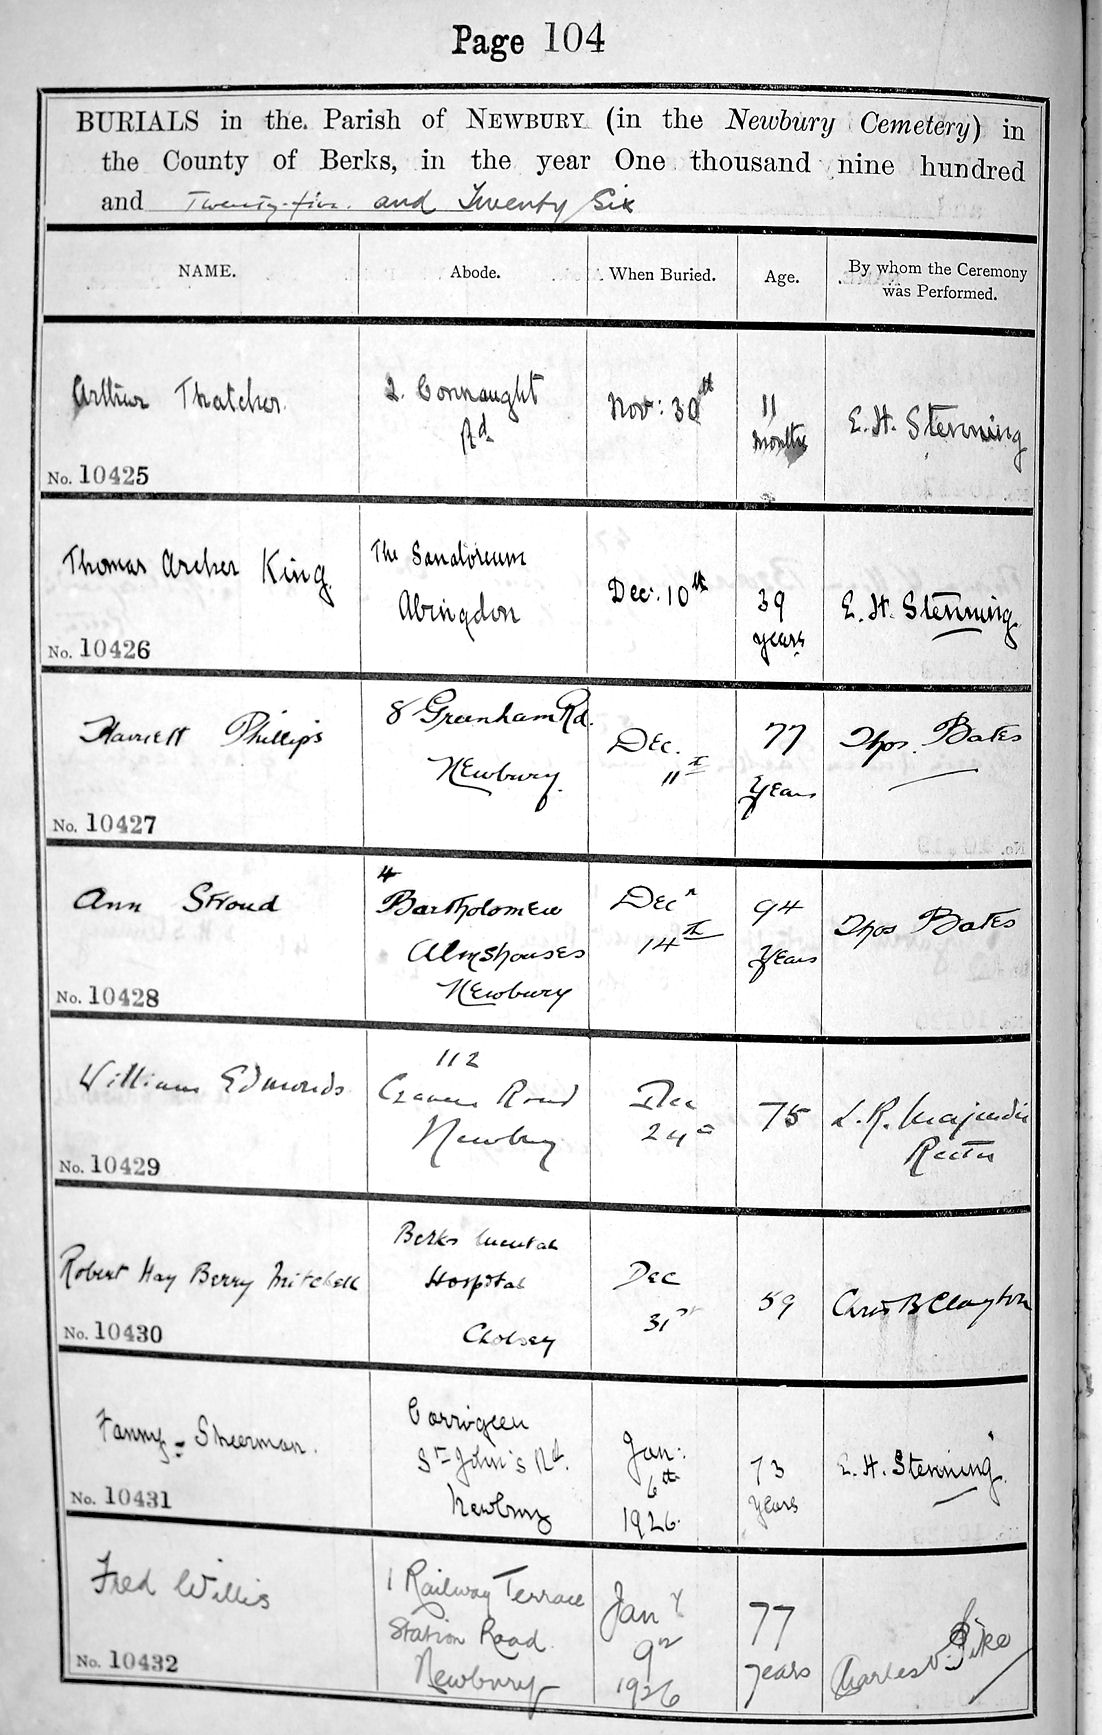 Page 104
BURIALS in the Parish of NEWBURY (in the Newbury Cemetery) in
the County of Berks, in the year One thousand nine hundred
and Twenty-five and Twenty Six
NAME.
Abode.
When Buried.
Age.
By whom the Ceremony
was Performed.
Arthur Thatcher.
No. 10425
2. Connaught
Rd
Nov: 30th
11
months
E. H. Stenning
Thomas Archer King.
No. 10426
The Sanatorium
Abingdon
Dec: 10th
39
years
E. H. Stenning.
Harriett Phillips
No. 10427
8 Greenham Rd.
Newbury.
Dec.
11th
77
Years
Thos. Bates
Ann Stroud
No. 10428
4
Bartholomew
Almshouses
Newbury
Decr
14th
94
Years
Thos Bates
William Edmonds
No. 10429
112
Craven Road
Newbury
Dec
24th
75
L. R. Majendie
Rector
Robert Hay Berry Mitchell
No. 10430
Berks Mental
Hospital
Cholsey
Dec
31st
59
Chris B Clayton
Fanny Sheerman.
No. 10431
Corrigeen
St John's Rd.
Newbury
Jan:
6th
1926.
73
years
E. H. Stenning.
Fred Willis
No. 10432
1 Railway Terrace
Station Road
Newbury
Jany
9th
1926
77
years
Charles V. Pike